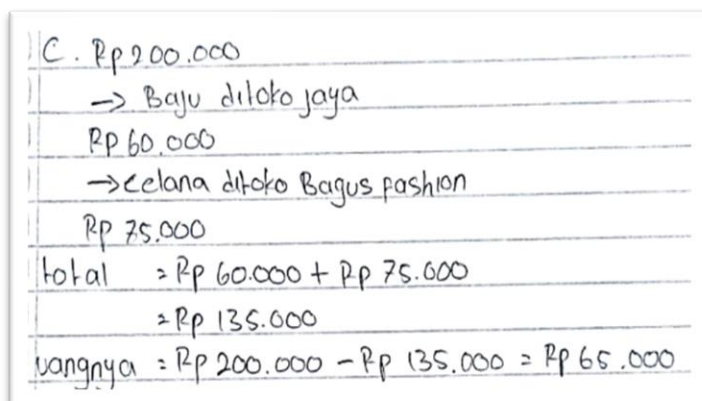 C. Rp 200.000
→ Baju ditoko jaya
Rp 60.000
→ celana ditoko Bagus fashion
Rp 75.000
total = Rp 60.000 + Rp 75.000
= Rp 135.000
uangnya = Rp 200.000 - Rp 135.000 = Rp 65.000